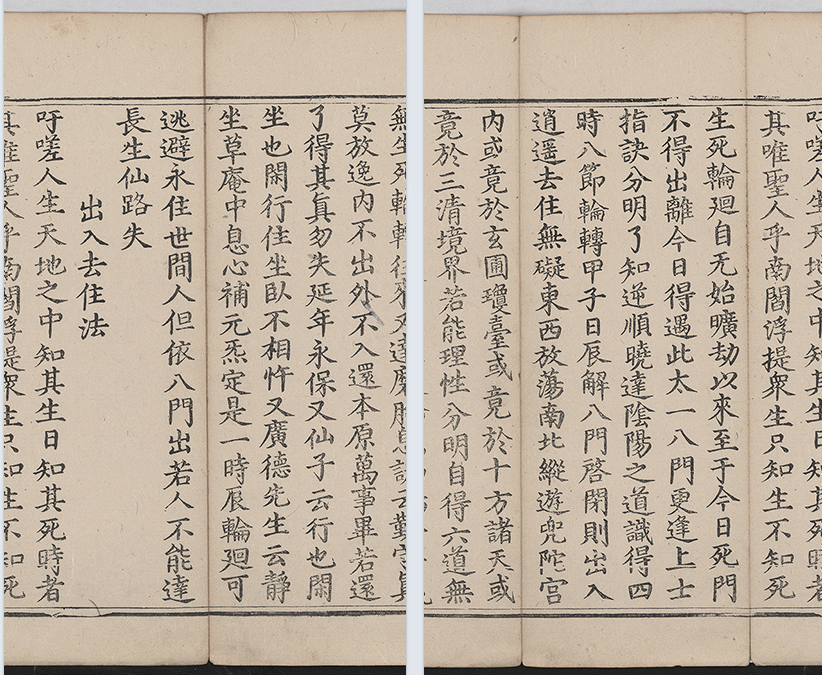 無生死輪轉往來又達磨胎息訣云勤守真
莫放逸內不出外不入還本原萬事畢若還
了得其眞勿失延年永保又仙子云行也閑
坐也閑行住坐臥不相忤又廣德先生云靜
坐草庵中息心補元炁定是一時辰輪廻可
逃避永住世間人但依八門出若人不能達
長生仙路失
出入去住法
吁嗟人生天地之中知其生日知其死時者
其唯聖人乎南閻浮提衆生只知生不知死
吁嗟人生天地之中知其生日知其死時者
其唯聖人乎南閻浮提衆生只知生不知死
生死輪廻自无始曠劫以來至于今日死門
不得出離今日得遇此太一八門更逢上士
指訣分明了知逆順曉達陰陽之道識得四
時八節輪轉甲子日辰解八門啓閉則出入
逍遥去住無礙東西放蕩南北縱遊兜陀宮
內或竟於玄圃瓊臺或竟於十方諸天或
竟於三清境界若能理性分明自得六道無